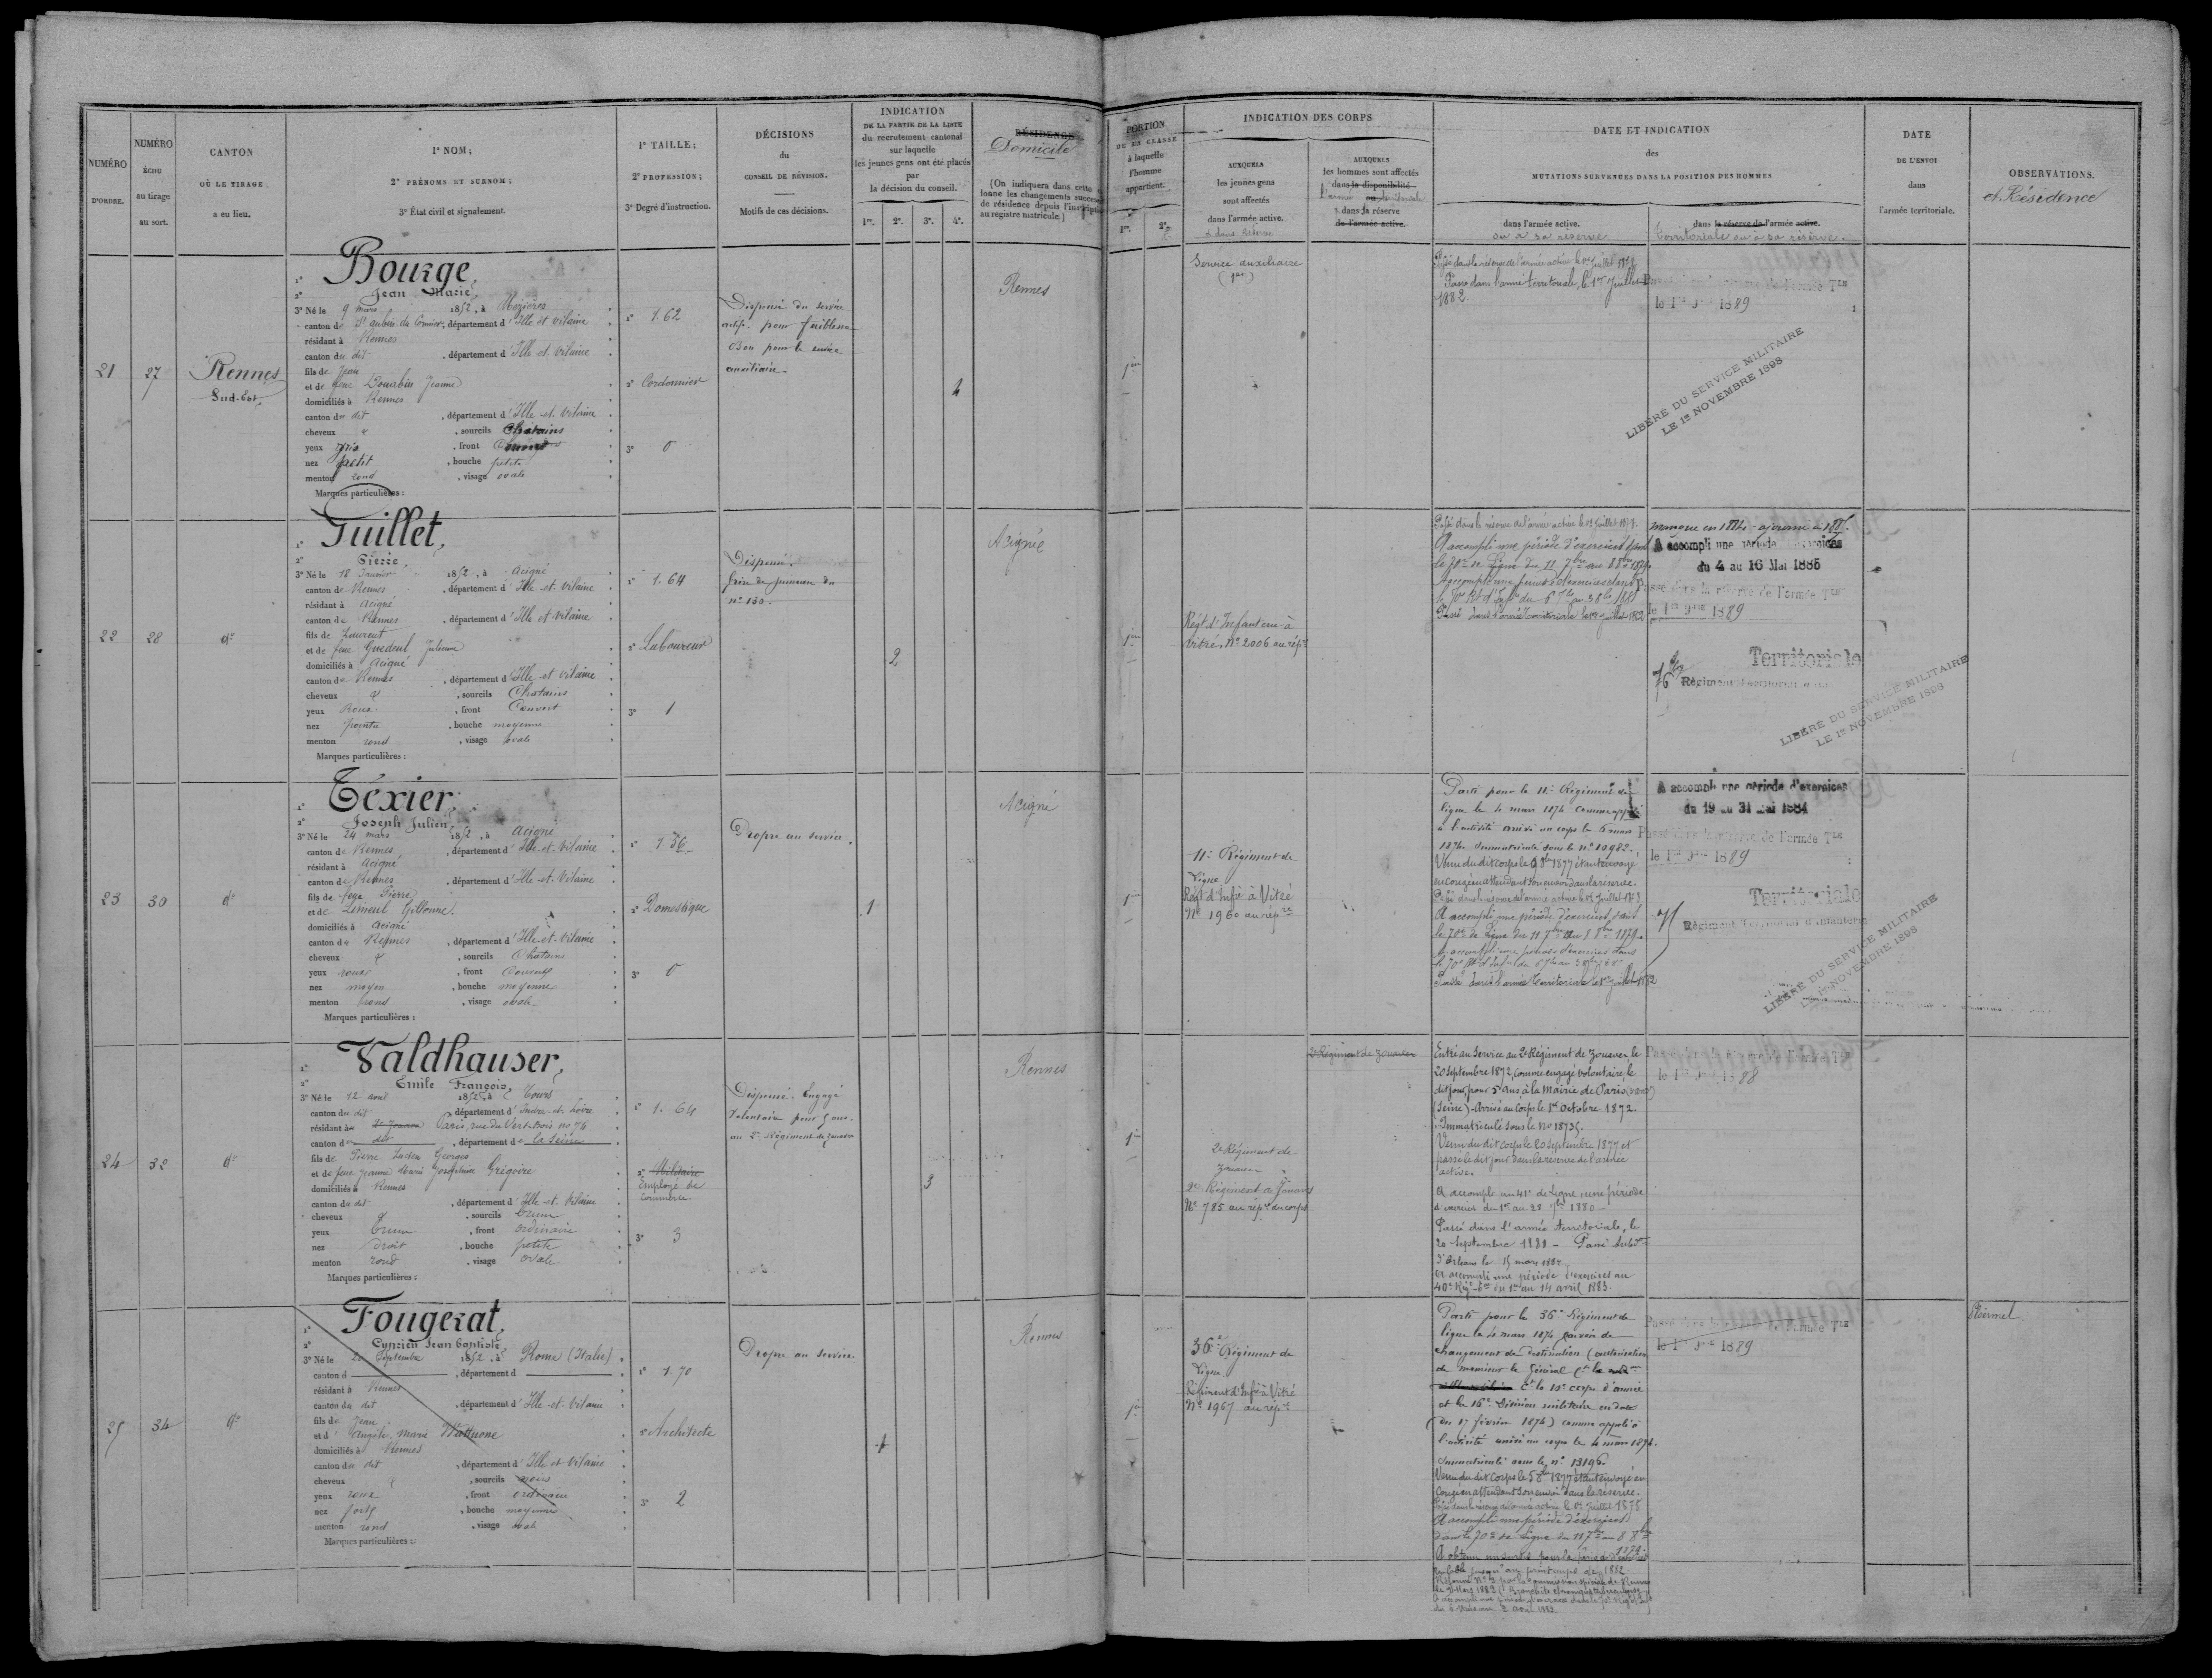 NUMÉRO
D'ORDRE.
NUMÉRO
ÉCHU
au tirage
au sort.
CANTON
OÙ LE TIRAGE
a eu lieu.
1º NOM;
2º PRÉNOMS ET SURNOM;
3º État civil et signalement.
1º TAILLE;
2º PROFESSION;
3º Degré d'instruction.
DÉCISIONS
du
CONSEIL DE RÉVISION.
Motifs de ces décisions.
INDICATION
DE LA PARTIE DE LA LISTE
du recrutement cantonal
sur laquelle
les jeunes gens ont été placés
par
la décision du conseil.
1re. 2e. 3e. 4e.
RÉSIDENCE
Domicile
(On indiquera dans cette
lonne les changements
de résidence depuis
au registre matricule.)
PORTION
DE LA CLASSE
à laquelle
l'homme
appartient.
1re. 2e.
INDICATION DES CORPS
AUXQUELS
les jeunes gens
sont affectés
dans l'armée active.
AUXQUELS
les hommes sont affectés
dans la disponibilité
dans la réserve
de l'armée active.
DATE ET INDICATION
des
MUTATIONS SURVENUES DANS LA POSITION DES HOMMES
dans l'armée active.
ou à sa réserve
dans la réserve de l'armée active.
Territoriale ou à sa réserve.
DATE
DE L'ENVOI
dans
l'armée territoriale.
OBSERVATIONS.
et Résidence
21
27
Rennes
Sud-Est
1º Bourge,
2º Jean Marie,
3º Né le 9 mars 1852, à Mézières
canton de St aubin du Cormier, département d'Ille et vilaine
résidant à Rennes
canton du dit, département d'Ille-et-vilaine
fils de Jean
et de feue Jeanne
domiciliés à Rennes
canton du dit, département d'Ille-et-vilaine
cheveux &, sourcils Chatains
yeux gris, front Couvert
nez petit, bouche petite
menton rond, visage ovale
Marques particulières :
1º 1.62
2º Cordonnier
3º 0
Dispensé du service
actif pour faiblesse
Bon pour le service
auxiliaire.
4
Rennes
Service auxiliaire
Passé dans la réserve de l'armée active le 1er Juillet
Passé dans l'armée territoriale, le 1er Juillet
1882.
le 1er 9bre 1889
LIBÉRÉ DU SERVICE MILITAIRE
LE 1er NOVEMBRE 1898
22
28
dº
1º Tuillet,
2º Pierre,
3º Né le 18 Janvier 1852, à Acigné
canton de Rennes, département d'Ille et vilaine
résidant à Acigné
canton de Rennes, département d'Ille et vilaine
fils de Laurent
et de feue Guedeul Julienne
domiciliés à Acigné
canton de Rennes, département d'Ille et vilaine
cheveux &, sourcils Chatains
yeux Roux, front Couvert
nez pointu, bouche moyenne
menton rond, visage ovale
Marques particulières :
1º 1.64
2º Laboureur
3º 1
Dispensé.
frère de jumeau du
nº 130.
2
Acigné
Régt d'Infanterie à
Vitré, Nº 2006 au répre
Passé dans la réserve de l'armée active le 1er Juillet
A accompli une période d'exercices dans
le 70e de Ligne du 11 7bre au 8 8bre 1879
Passé dans l'armée Territoriale le 1er juillet 1882
Manque en 1884 - ajourné à 1885.
A accompli une période d'exercices
du 4 au 16 Mai 1885
Passé dans la réserve de l'armée Tle
le 1er 9bre 1889
Territoriale
76 Régiment territorial
LIBÉRÉ DU SERVICE MILITAIRE
LE 1er NOVEMBRE 1898
23
30
dº
1º Téxier,
2º Joseph Julien,
3º Né le 24 mars 1852, à Acigné
canton de Rennes, département d'Ille-et-vilaine
résidant à Acigné
canton de Rennes, département d'Ille-et-vilaine
fils de feu Pierre
et de Limeul Gillonne.
domiciliés à Acigné
canton de Rennes, département d'Ille-et-vilaine
cheveux &, sourcils Chatains
yeux roux, front Couvert
nez moyen, bouche moyenne
menton rond, visage ovale
Marques particulières :
1º 1.56
2º Domestique
3º 0
Propre au service.
1
Acigné
11e Régiment de
Ligne
Régt d'Infrie à Vitré
Nº 1960 au répre
Parti pour le 11e Régiment de
ligne le 4 mars 1874 comme appelé
à l'activité arrivé au corps le 6 mars
1874. Immatriculé sous le nº 10982.
Venu du dit corps le 1877 étant envoyé
en congé en attendant son envoi dans la réserve.
A accompli une période d'exercices dans
le 70e de Ligne du 11 7bre au 8 8bre 1879.
Passé dans l'armée Territoriale le 1er juillet 1882
A accompli une période d'exercices
du 19 au 31 mai 1884
Passé dans la réserve de l'armée Tle
le 1er 9bre 1889
Territoriale
Régiment Territorial d'Infanterie
LIBÉRÉ DU SERVICE MILITAIRE
LE 1er NOVEMBRE 1898
24
32
dº
1º Valdhauser,
2º Emile François,
3º Né le 12 aout 1852, à Tours
canton du dit département d'Indre-et-Loire
résidant à Paris, rue du Vertbois nº 76
canton de dit, département de la Seine
fils de Pierre Lucien Georges
et de feue Jeanne Marie Joséphine Grégoire
domiciliés à Rennes
canton du dit, département d'Ille-et-vilaine
cheveux &, sourcils brun
yeux brun, front ordinaire
nez droit, bouche petite
menton rond, visage ovale
Marques particulières :
1º 1.64
2º Militaire
Employé de
Commerce.
3º 3
Dispensé. Engagé
Volontaire pour 5 ans
au 2e Régiment de zouaves
3
Rennes
2e Régiment de
Zouaves
2e Régiment de Zouaves
Nº 785 au répre du corps
2e Régiment de Zouaves
Entré au Service au 2e Régiment de Zouaves, le
20 septembre 1872, comme engagé volontaire, le
dit jour, pour 5 ans à la Mairie de Paris
(Seine) - Arrivé au Corps le 1er Octobre 1872.
Immatriculé sous le nº 18735.
Venu du dit corps le 20 septembre 1877 et
passé le dit jour dans la réserve de l'armée
active.
A accompli au 41e de Ligne, une période
d'exercices du 1er au 28 7bre 1880
Passé dans l'armée territoriale, le
20 septembre 1881 - Passé
d'Orléans le 15 mars 1882
A accompli une période d'exercices au
40e Régt du 1er au 14 avril 1883.
Passé dans la réserve de l'armée Tle
le 1er 1888
25
34
dº
1º Fougerat,
2º Cyprien Jean baptiste
3º Né le 20 Septembre 1852, à Rome (Italie)
canton d, département d
résidant à Rennes
canton du dit, département d'Ille-et-vilaine
fils de Jean
et d'Angèle Marie
domiciliés à Rennes
canton du dit, département d'Ille et vilaine
cheveux &, sourcils noirs
yeux roux, front ordinaire
nez fort, bouche moyenne
menton rond, visage ovale
Marques particulières :
1º 1.70
2º Architecte
3º 2
Propre au service
1
Rennes
36e Régiment de
Ligne
Régiment d'Infie à Vitré
Nº 1967 au répre
Parti pour le 36e Régiment de
ligne le 4 mars 1874 par suite de
changement de destination (autorisation
de monsieur le Général
Ct le 10e corps d'armée
et la 16e Division militaire en date
du 17 février 1874) comme appelé à
l'activité arrivé au corps le 4 mars 1874.
Immatriculé sous le nº 13196.
Venu du dit Corps le 5 8bre 1877 étant envoyé en
Congé en attendant son envoi dans la réserve.
A accompli une période d'exercices
dans le 70e de Ligne du 11 7bre au 8 8bre
1879.
du 6 mars au 2 avril 1882
Passé dans la réserve de l'armée Tle
le 1er 9bre 1889
Ploërmel